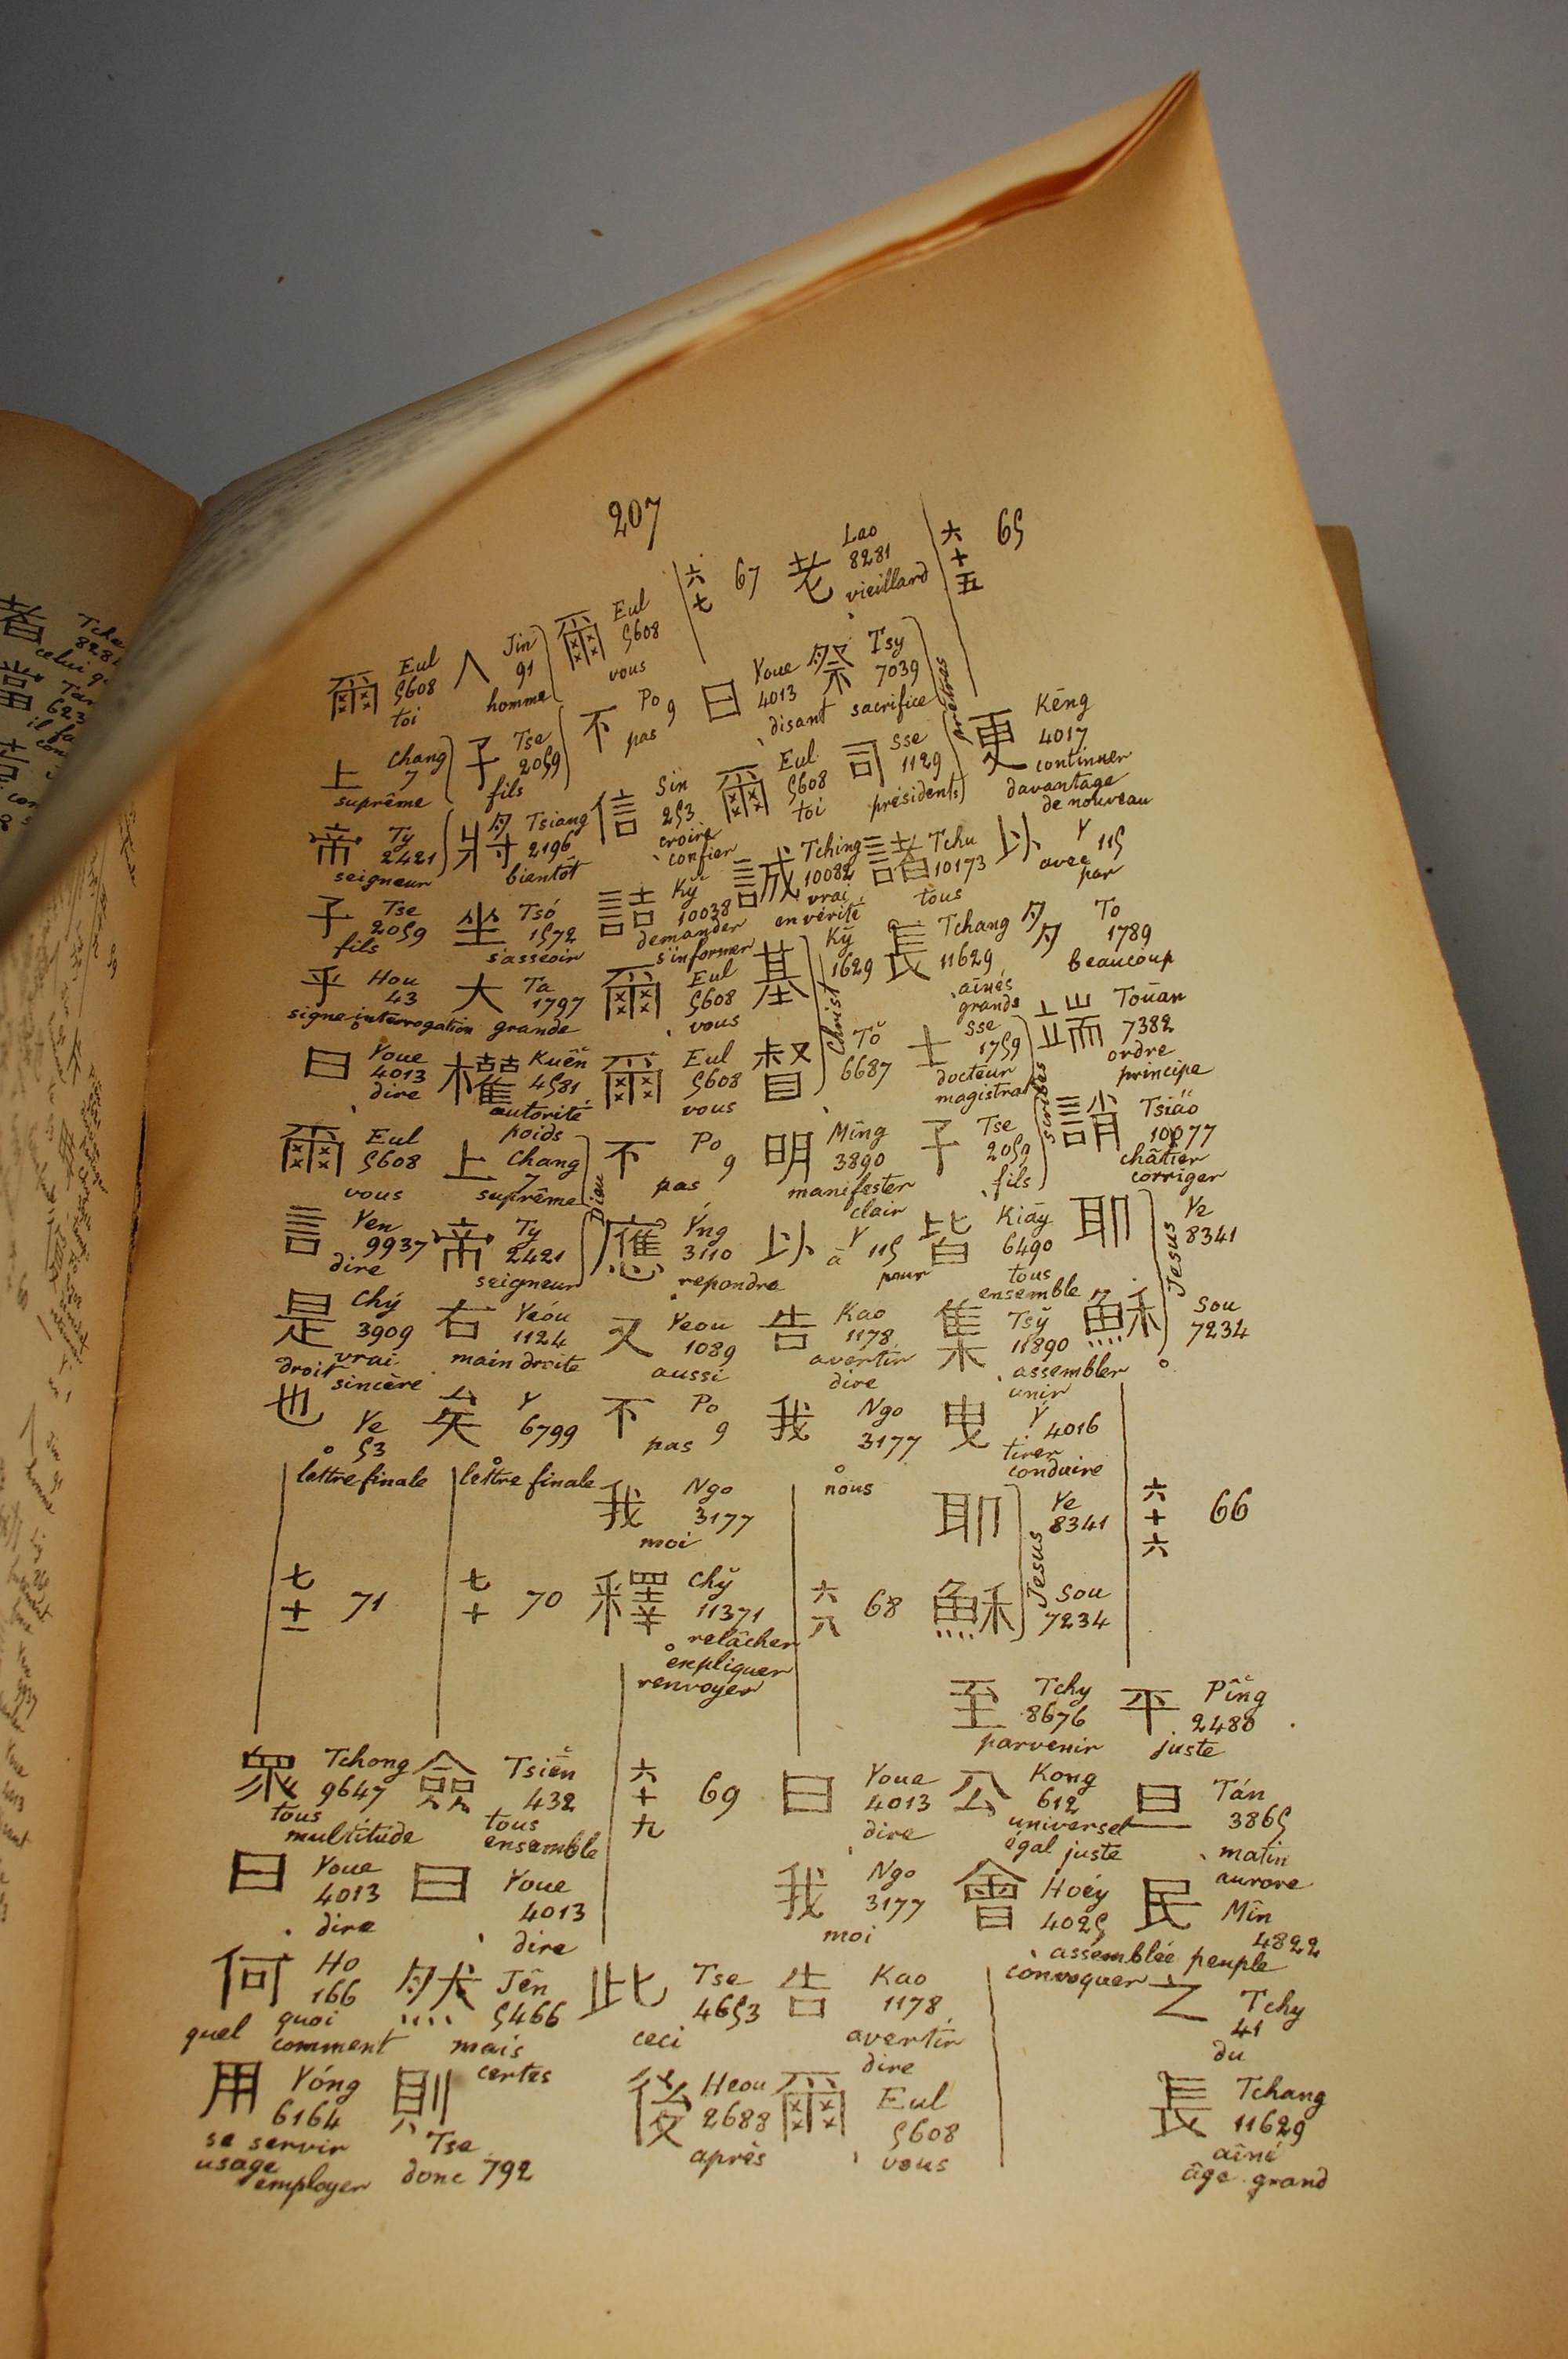 207
六十五 65
更 Kēng 4017
continuer
davantage
de nouveau
以 Y 115
avec par
多 To 1789
beaucoup
端 Toūan 7382
ordre
principe
誚 Tsiáo 10077
châtier
corriger
耶 Ye 8341
穌 Sou 7234
Jesus
六十六 66
平 Pîng 2480
juste
旦 Tán 3865
matin
aurore
民 Mîn 4822
peuple
之 Tchy 41
du
長 Tchang 11629
aîné
âge grand
老 Lao 8281
vieillard
祭 Tsy 7039
sacrifice
司 Sse 1129
présidents
諸 Tchu 10173
tous
長 Tchang 11629
aînés
grands
士 Sse 1759
docteur
magistrat
子 Tse 2059
fils
scribes
皆 Kiāy 6490
tous
ensemble
集 Tsy 11890
assembler
unir
曳 Y 4016
tirer
conduire
耶 Ye 8341
穌 Sou 7234
Jesus
至 Tchy 8676
parvenir
公 Kong 612
universel
égal juste
會 Hoéy 4025
assemblée
convoquer
六七 67
曰 Youe 4013
disant
爾 Eul 5608
toi
誠 Tching 10082
vrai
en vérité
基 Ky 1629
督 To 6687
Christ
明 Mîng 3890
manifester
clair
以 Y 115
à pour
告 Kao 1178
avertir
dire
我 Ngo 3177
nous
六八 68
曰 Youe 4013
dire
我 Ngo 3177
moi
告 Kao 1178
avertir
dire
爾 Eul 5608
vous
爾 Eul 5608
vous
不 Po 9
pas
信 Sin 253
croire
confier
詰 Ky 10038
demander
s'informer
爾 Eul 5608
vous
爾 Eul 5608
vous
不 Po 9
pas
應 Ýng 3110
repondre
又 Yeou 1089
aussi
不 Po 9
pas
我 Ngo 3177
moi
釋 Chy 11371
relâcher
expliquer
renvoyer
六十九 69
此 Tse 4653
ceci
後 Heou 2688
après
人 Jin 91
homme
子 Tse 2059
fils
將 Tsiang 2196
bientôt
坐 Tsó 1572
s'asseoir
大 Ta 1797
grande
權 Kuên 4581
autorité
poids
上 Chang 7
suprême
帝 Ty 2421
seigneur
Dieu
右 Yeóu 1124
main droite
矣 Y 6799
lettre finale
七十 70
僉 Tsien 432
tous
ensemble
曰 Youe 4013
dire
然 Jên 5466
mais
certes
則 Tse 792
donc
爾 Eul 5608
toi
上 Chang 7
suprême
帝 Ty 2421
seigneur
子 Tse 2059
fils
乎 Hou 43
signe interrogation
曰 Youe 4013
dire
爾 Eul 5608
vous
言 Yen 9937
dire
是 Chý 3909
droit vrai
sincère
也 Ye 53
lettre finale
七十一 71
眾 Tchong 9647
tous
multitude
曰 Youe 4013
dire
何 Ho 166
quel quoi
comment
用 Yóng 6164
se servir
usage
employer